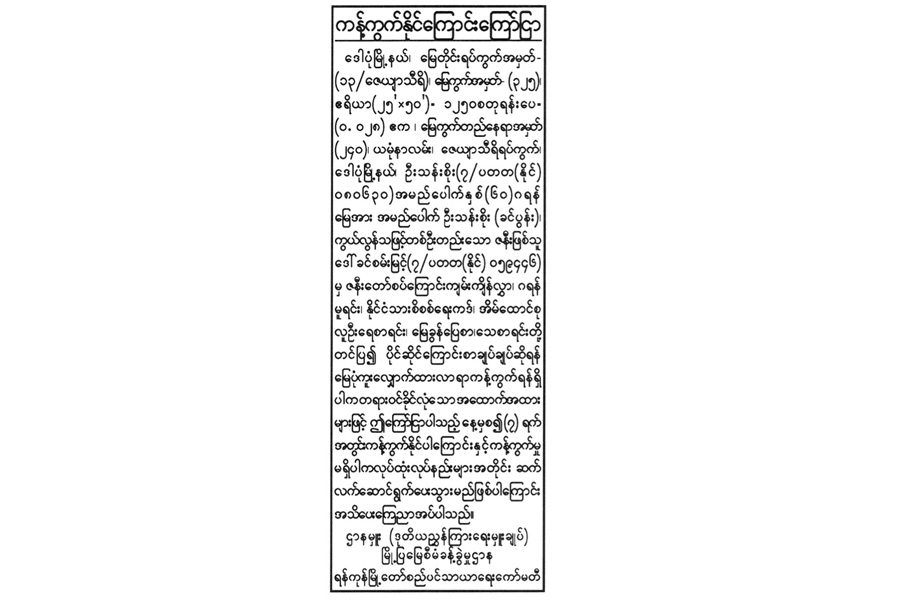 ကန့်ကွက်နိုင်ကြောင်းကြော်ငြာ
ဒေါပုံမြို့နယ်၊ မြေတိုင်းရပ်ကွက်အမှတ်-
(၁၃/ဇေယျာသီရိ)၊ မြေကွက်အမှတ်- (၃၂၅)၊
ဧရိယာ(၂၅'×၅၀')- ၁၂၅၀စတုရန်းပေ-
(၀. ၀၂၈) ဧက ၊ မြေကွက်တည်နေရာအမှတ်
(၂၄၀)၊ ယမုံနာလမ်း၊ ဇေယျာသီရိရပ်ကွက်၊
ဒေါပုံမြို့နယ်၊ ဦးသန်းစိုး(၇/ပတတ(နိုင်)
၀၈၀၆၃၀)အမည်ပေါက်နှစ်(၆၀)ဂရန်
မြေအား အမည်ပေါက် ဦးသန်းစိုး (ခင်ပွန်း)၊
ကွယ်လွန်သဖြင့်တစ်ဦးတည်းသော ဇနီးဖြစ်သူ
ဒေါ်ခင်စမ်းမြင့်(၇/ပတတ(နိုင်) ၀၅၉၄၄၆)
မှ ဇနီးတော်စပ်ကြောင်းကျမ်းကျိန်လွှာ၊ ဂရန်
မူရင်း၊ နိုင်ငံသားစိစစ်ရေးကဒ်၊ အိမ်ထောင်စု
လူဦးရေစာရင်း၊ မြေခွန်ပြေစာ၊သေစာရင်းတို့
တင်ပြ၍ ပိုင်ဆိုင်ကြောင်းစာချုပ်ချုပ်ဆိုရန်
မြေပုံကူးလျှောက်ထားလာရာကန့်ကွက်ရန်ရှိ
ပါကတရားဝင်ခိုင်လုံသောအထောက်အထား
များဖြင့် ဤကြော်ငြာပါသည့် နေ့မှစ၍(၇) ရက်
အတွင်းကန့်ကွက်နိုင်ပါကြောင်းနှင့်ကန့်ကွက်မှု
မရှိပါကလုပ်ထုံးလုပ်နည်းများအတိုင်း ဆက်
လက်ဆောင်ရွက်ပေးသွားမည်ဖြစ်ပါကြောင်း
အသိပေးကြေညာအပ်ပါသည်။
ဌာနမှူး (ဒုတိယညွှန်ကြားရေးမှူးချုပ်)
မြို့ပြမြေစီမံခန့်ခွဲမှုဌာန
ရန်ကုန်မြို့တော်စည်ပင်သာယာရေးကော်မတီ